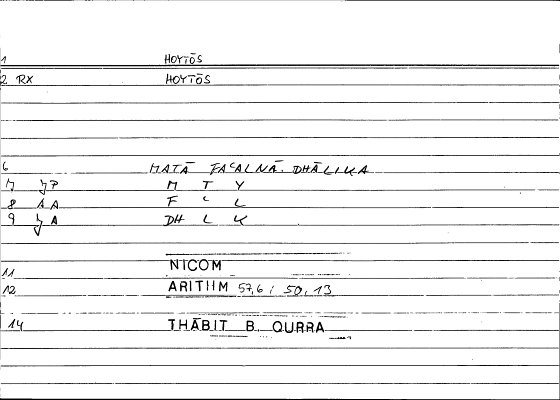 1 HOYTŌS
2 RX HOYTŌS
6 MATĀ FAʿALNĀ. DHĀLIKA
7 M T Y
8 AA F ʿ L
9 A DH L K
11 NICOM
12 ARITHM 57,6 / 50,13
14 THĀBIT B. QURRA